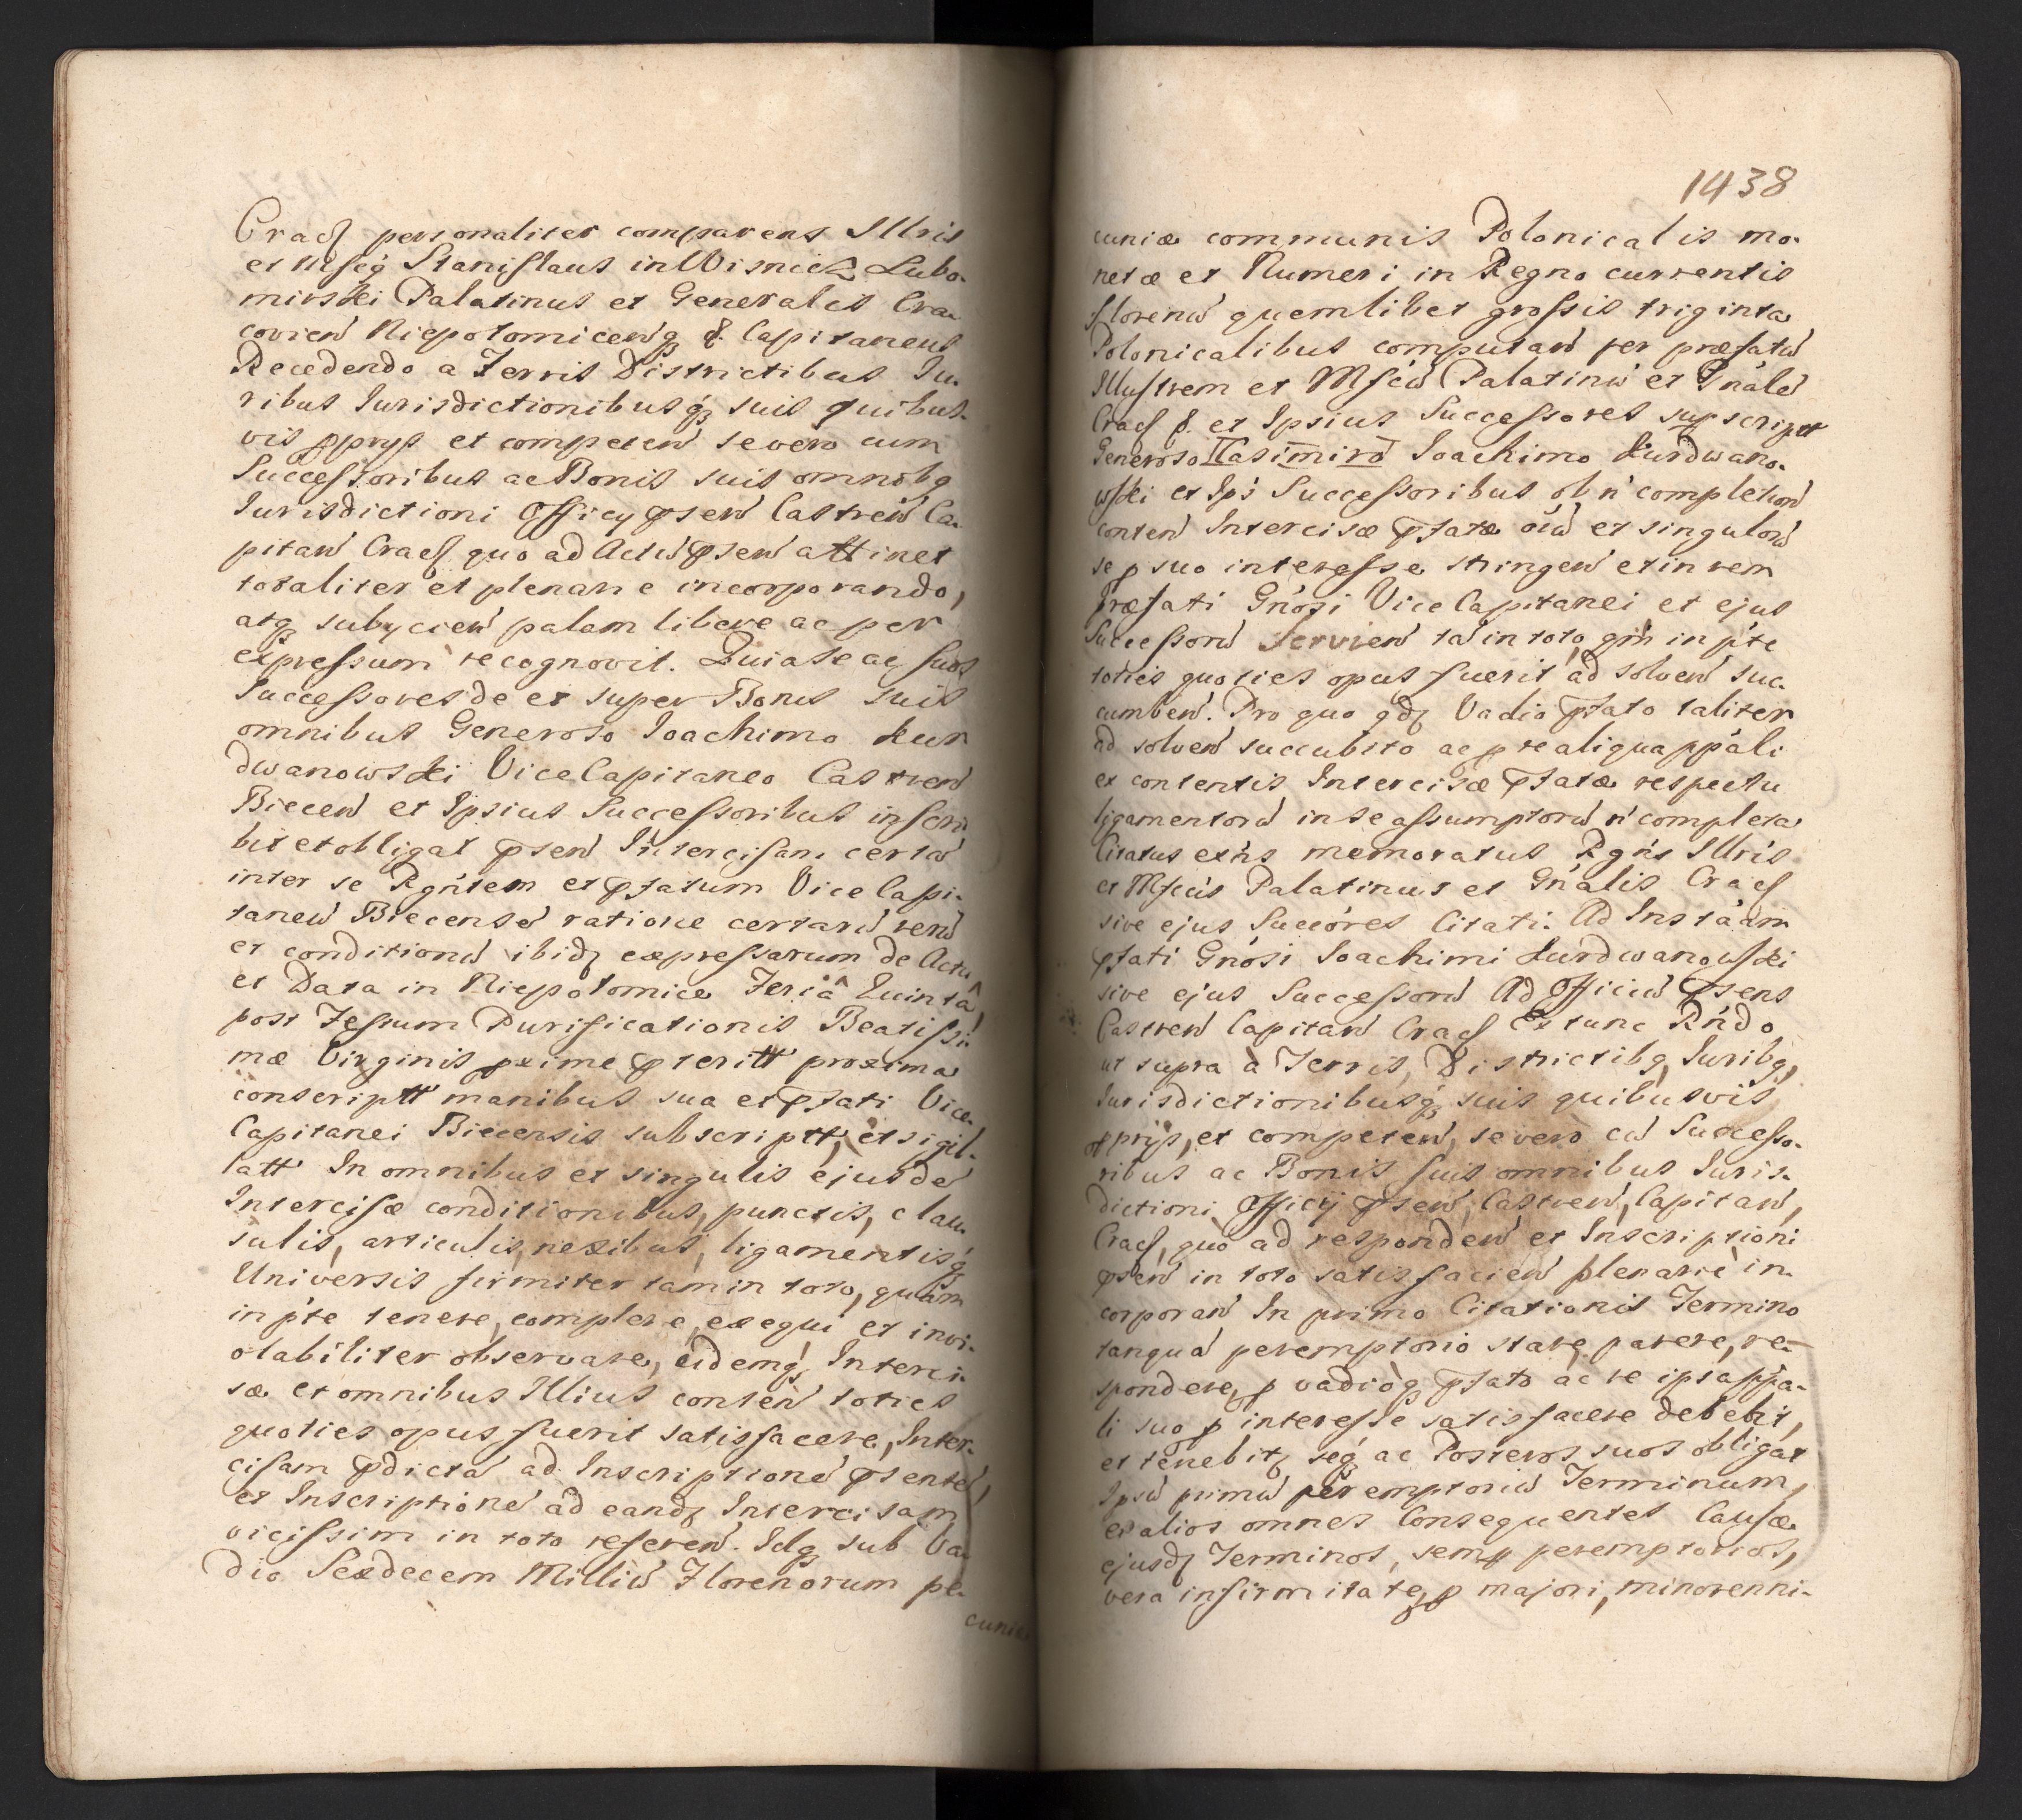 Cracḡ personaliter comparens Illris
et Mfcq́ Stanislaus in Wisnicz Lubo-
mirski Palatinus et Generalis Cra-
covień Niepolomiceńq̨ &. Capitaneus
Recedendo a Terris Districtibus Iu-
ribus Iurisdictionibusq́ suis quibus-
vis pprys et competeń se vero cum
Successoribus ac Bonis suis omnibq
Iurisdictioni Officy psenń Castreń Ca-
pitań Cracḡ quo ad Actú pseń attinet
totaliter et plenarie incorporando,
atq̨ subycień palam libere ac per
expressum recognovit. Quia se ac suos
Successores de et super Bonis suis
omnibus Generoso Ioachimo Kur
dwanowski ViceCapitaneo Castreń
Bieceń et Ipsius Successoribus inscri
bit et obligat pseń Intercisam certá
inter se Rgńtem et pfatum Vice Capi-
taneú Biecensé ratione certarú rerú
et conditionú ibidȝ expressarum de Actu
et Data in Niepolomice Feriâ Quintâ
post Festum Purificationis Beatissi-
mæ Virginis pxime pteritt proxima
conscriptt manibus sua et pfati Vice
Capitanei Biecensis subscriptt, et sigil-
latt In omnibus et singulis ejusdé
Intercisæ conditionibus, punctis, clau-
sulis, articulis, nexibus, ligamentisq́
Universis firmiter tam in toto, quám
in pte tenere, complere, exequi et invi-
olabiliter observare, eidemq́ Interci-
sæ et omnibus Illius conteń toties
quoties opus fuerit satisfacere, Inter-
cisam pdictá ad Inscriptioné psenté,
et Inscriptioné ad eandȝ Intercisam
vicissim in toto refereń. Idq̨ sub Va-
dio Sexdecem MillIú Florenorum pe-
cuniæ
1438
cuniæ communis Polonicalis mo-
netæ et Numeri in Regno currentis
florenú quemlibet grossis triginta
Polonicalibus computań per præfatú
Illustrem et Mfcú Palatinú et Gnálé
Cracḡ &. et Ipsius Successores supscript
Generoso Casimiro Ioachimo Kurdwano-
wski et Ips̓ Successoribus ob ń completioń
conteń Intercisæ pfatæ oiú et singulorú
se p suo interesse stringeń et in rem
præfati Gnósi Vice Capitanei et ejus
Successorú Servień tá in toto, qm̓ in pte
toties quoties opus fuerit ad solveń suc-
cumbeń. Pro quo qdȝ Vadio pfato taliter
ad solveń succubito ac p re aliqua ppáli
et contentis Intercisæ pfatæ respectu
ligamentorú in se assumptorú ń completa
Citatus exńs memoratus Rgńs Illrís
et Mfcús Palatinus et Gnális Cracḡ
sive ejus Succóres Citati. Ad Instáám
pfati Gnósi Ioachimi Kurdwanowski
sive ejus Successorú Ad Officiú psens
Castreń Capitań Cracḡ Ex tunc Rńdo
ut supra à Terris, Districtibq, Iuribq,
Iurisdictionibusq́ suis quibusvis
pprijs, et competeń, se vero cú Successo-
ribus ac Bonis suis omnibus Iuris-
dictioni Officij pseń, Castreń, Capitań,
Cracḡ, quo ad respondeń et Inscriptioni
pseń in toto satisfacień plenariè in-
corporań In primo Citationis Termino
tanquá peremptorio stare, parere, re-
spondere, p vadiòq̨ pfato ac re ipsa ppa-
li suo p interesse satisfacere debebit,
et tenebitȝ seq́ ac Posteros suos obligat
Ipsú primú péremptoriú Terminum,
et alios omnes Consequentes Causæ
ejusdȝ Terminos, semp peremptorios,
vera infirmitate, p majori, minorenni-